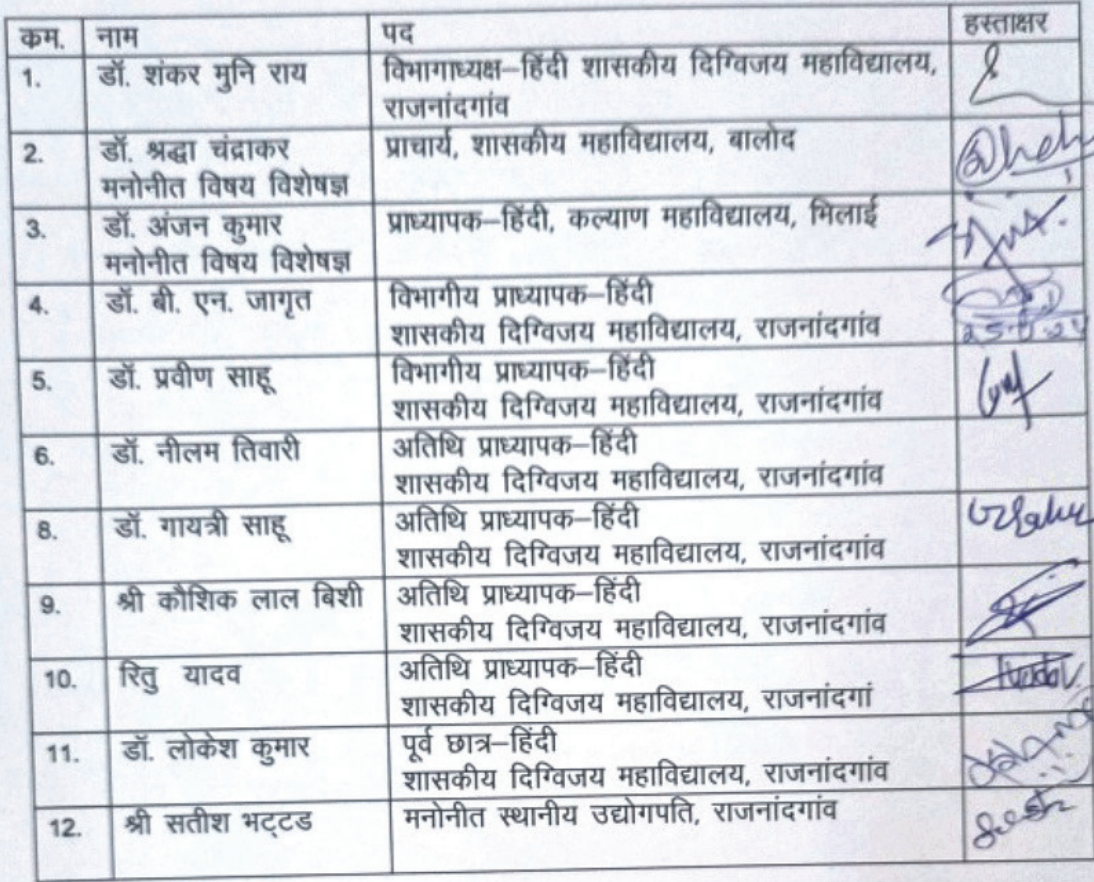 कम. नाम पद हस्ताक्षर
1. डॉ. शंकर मुनि राय विभागाध्यक्ष–हिंदी शासकीय दिग्विजय महाविद्यालय,
राजनांदगांव
2. डॉ. श्रद्धा चंद्राकर प्राचार्य, शासकीय महाविद्यालय, बालोद
मनोनीत विषय विशेषज्ञ
3. डॉ. अंजन कुमार प्राध्यापक–हिंदी, कल्याण महाविद्यालय, भिलाई
मनोनीत विषय विशेषज्ञ
4. डॉ. बी. एन. जागृत विभागीय प्राध्यापक–हिंदी
शासकीय दिग्विजय महाविद्यालय, राजनांदगांव
5. डॉ. प्रवीण साहू विभागीय प्राध्यापक–हिंदी
शासकीय दिग्विजय महाविद्यालय, राजनांदगांव
6. डॉ. नीलम तिवारी अतिथि प्राध्यापक–हिंदी
शासकीय दिग्विजय महाविद्यालय, राजनांदगांव
8. डॉ. गायत्री साहू अतिथि प्राध्यापक–हिंदी
शासकीय दिग्विजय महाविद्यालय, राजनांदगांव
9. श्री कौशिक लाल बिशी अतिथि प्राध्यापक–हिंदी
शासकीय दिग्विजय महाविद्यालय, राजनांदगांव
10. रितु यादव अतिथि प्राध्यापक–हिंदी
शासकीय दिग्विजय महाविद्यालय, राजनांदगां
11. डॉ. लोकेश कुमार पूर्व छात्र–हिंदी
शासकीय दिग्विजय महाविद्यालय, राजनांदगांव
12. श्री सतीश भट्टड मनोनीत स्थानीय उद्योगपति, राजनांदगांव